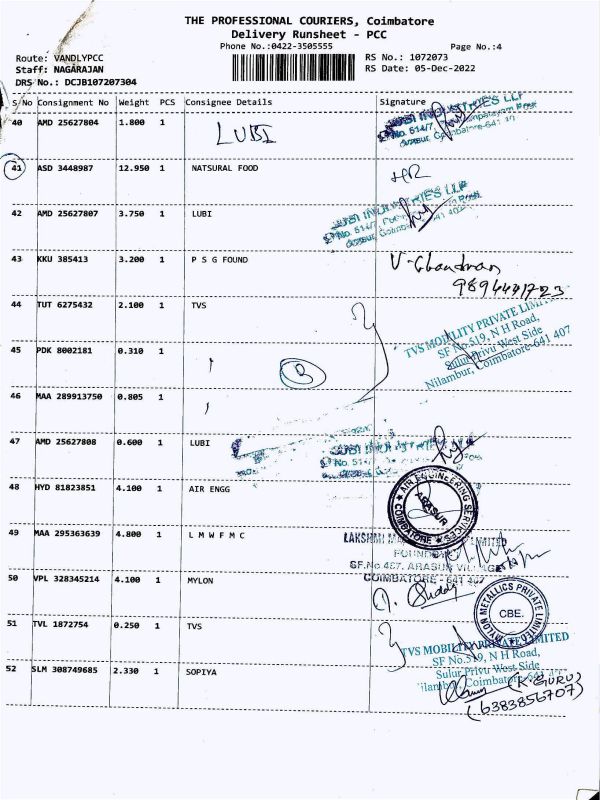 THE PROFESSIONAL COURIERS, Coimbatore
Delivery Runsheet - PCC
Phone No.:0422-3505555
Page No.:4
Route: VANDLYPCC
RS No.: 1072073
Staff: NAGARAJAN
RS Date: 05-Dec-2022
DRS No.: DCJB107207304
S No Consignment No Weight PCS Consignee Details Signature
40 AMD 25627804 1.800 1 LUBI
LUBI INDUSTRIES LLP
41 ASD 3448987 12.950 1 NATSURAL FOOD
42 AMD 25627807 3.750 1 LUBI
LUBI INDUSTRIES LLP
43 KKU 385413 3.200 1 P S G FOUND
V-Chandran
9894441723
44 TUT 6275432 2.100 1 TVS
TVS MOBILITY PRIVATE LIMITED
SF No.519, N H Road,
Sulur Privu West Side
Nilambur, Coimbatore-641 407
45 PDK 8002181 0.310 1
3
46 MAA 289913750 0.805 1
47 AMD 25627808 0.600 1 LUBI
48 HYD 81823851 4.100 1 AIR ENGG
AIR ENGINEERING SERVICES
ARASUR
COIMBATORE
49 MAA 295363639 4.800 1 L M W F M C
LAKSHMI LIMITED
FOUNDRY
SF.No 457, ARASUR VILLAGE
COIMBATORE - 641 407
50 VPL 328345214 4.100 1 MYLON
MYLON METALLICS PRIVATE LIMITED
CBE.
51 TVL 1872754 0.250 1 TVS
TVS MOBILITY PRIVATE LIMITED
SF No.519, N H Road,
Sulur Privu West Side
Nilambur, Coimbatore-641 407
52 SLM 308749685 2.330 1 SOPIYA
(K.GURU)
(6383856707)